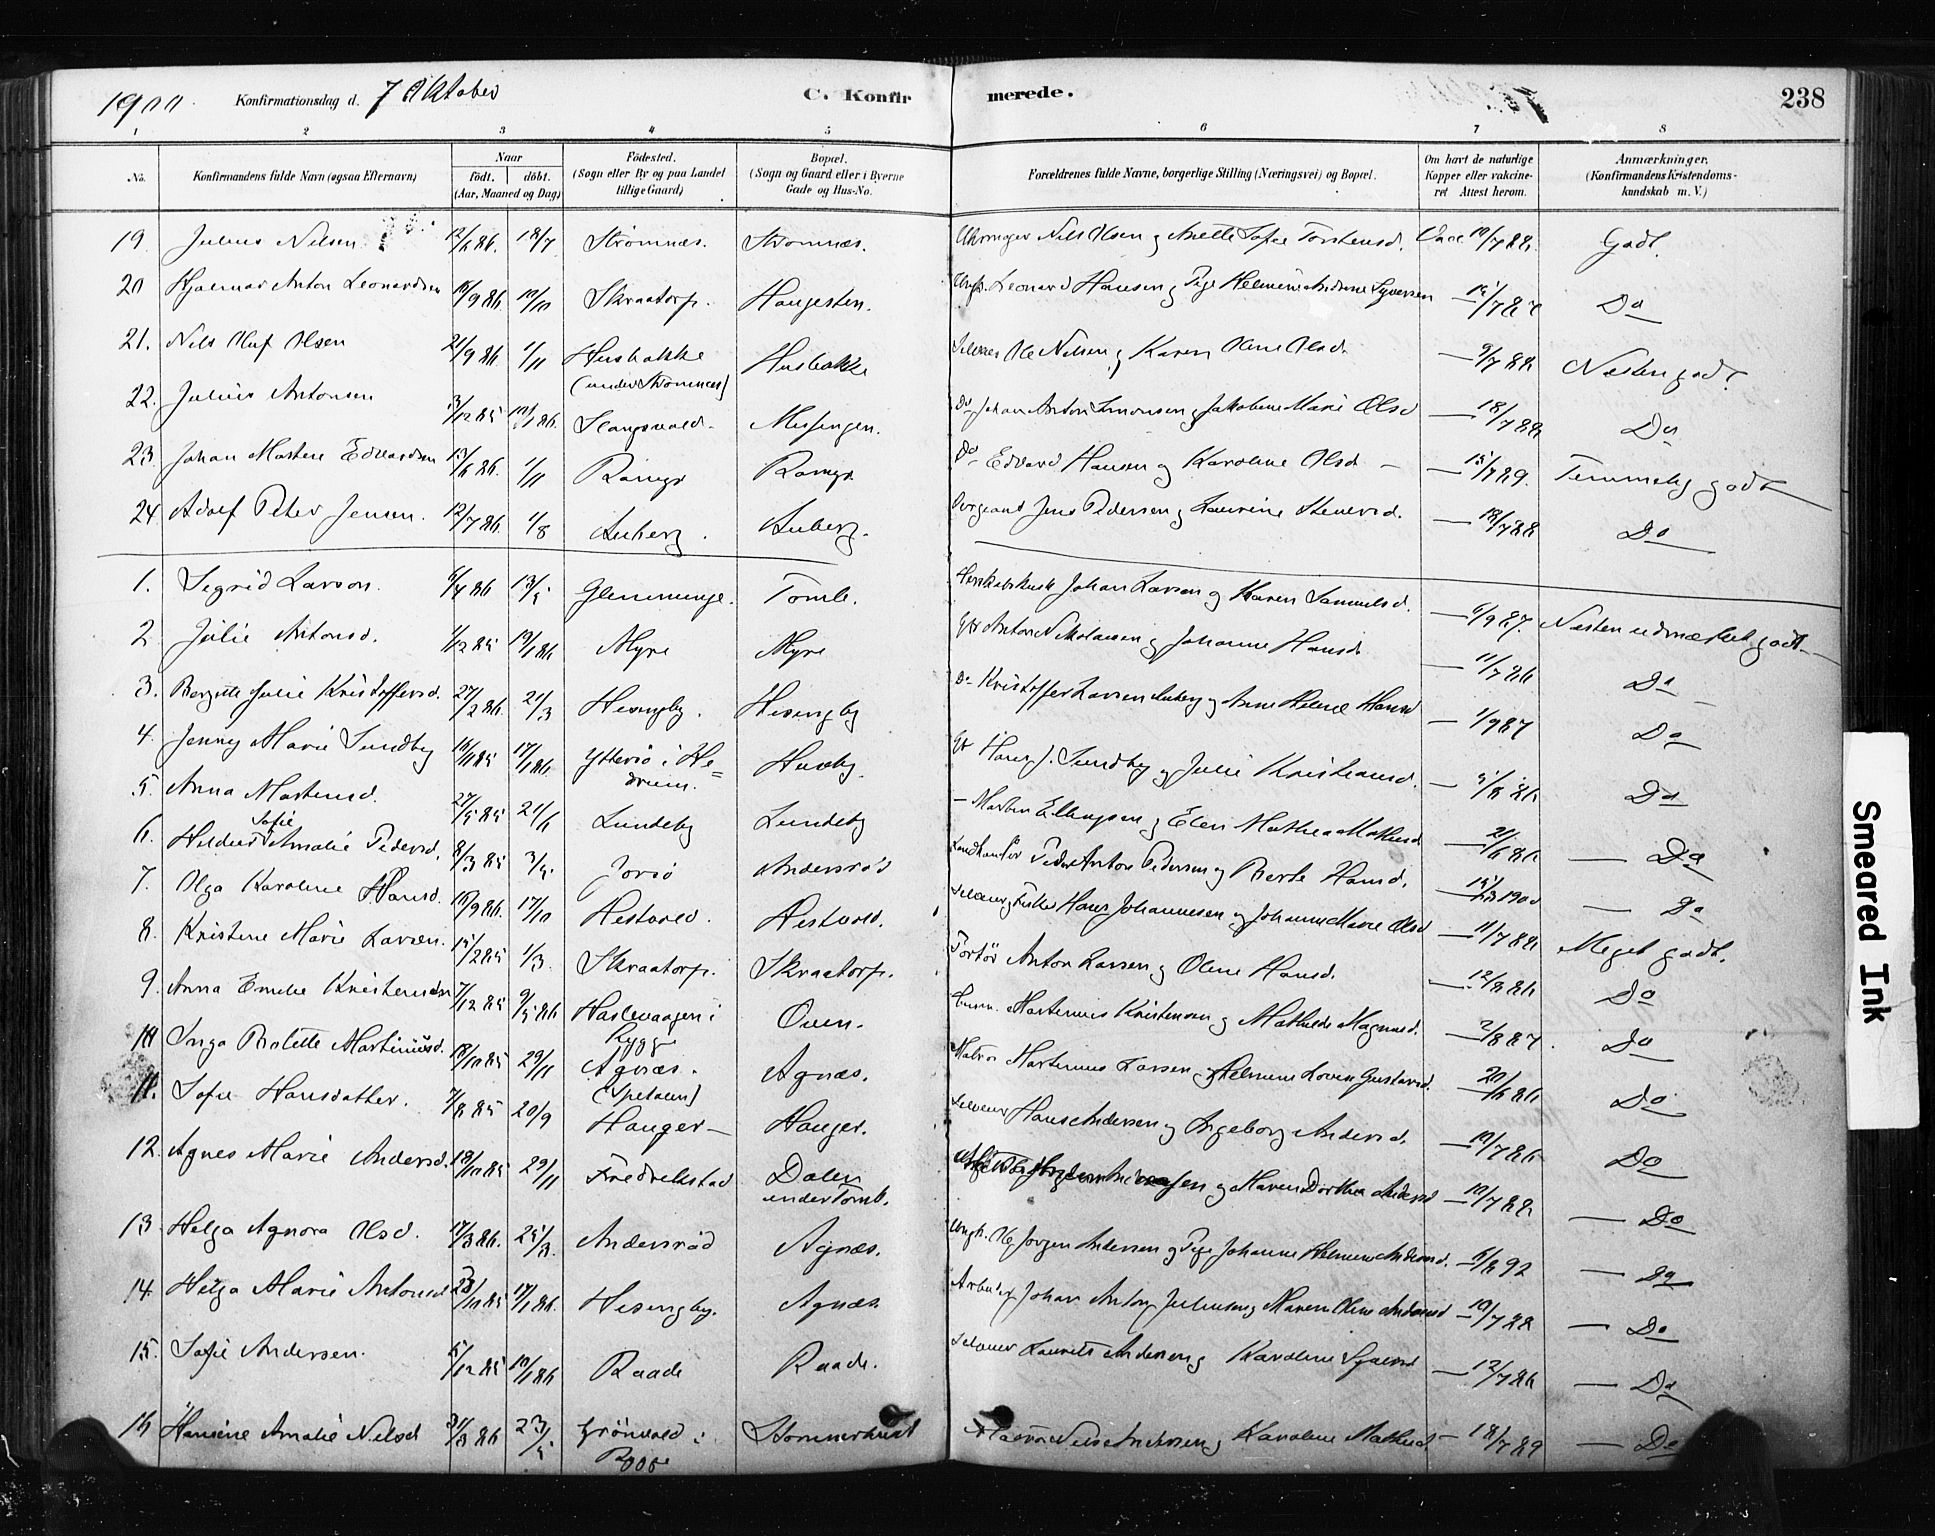 1900. Konfirmationsdag d. 7 Oktober C. Konfirmerede. 238
1 2 3 4 5 6 7 8
No. Konfirmandens fulde Navn (ogsaa Efternavn) Naar født. døbt. (Aar, Maaned og Dag) Fødested. (Sogn eller By og paa Landet tillige Gaard) Bopæl. (Sogn og Gaard eller i Byerne Gade og Hus-No. Forældrenes fulde Navne, borgerlige Stilling (Næringsvei) og Bopæl. Om havt de naturlige Kopper eller vakcineret Attest herom. Anmærkninger, (Konfirmandens Kristendomskundskab m. V.)
19. Julius Nilsen 18/7 Strømnæs. Strømnæs. Nils Olsen og Anette Sofie Torstensd. Vacc 10/7 88. Godt.
20 Hjalmar Anton Leonardsen 10/9 86 10/10 Skraatorp. Haugesten. Ungk. Leonard Hansen og Pige Helmine Andrine Syversen Do
21. Nils Oluf Olsen 21/9 86 1/11 Husbakke (under Strømnæs) Husbakke Ole Nilsen og Karen Oline Olsd. 9/7 88 Næsten godt.
22. Julius Antonsen 3/12 85 10/1 86. Slangsvold. Missingen. Do Johan Anton Simonsen og Jakobine Marie Olsd 18/7 88 Do
23. Johan Martin Edvardsen 13/6 86. 1/11 Ramyr Ramyr Do Edvard Hansen og Karoline Olsd 15/7 89. Temmelig godt
24 Adolf Peter Jensen. 12/7 86. 1/8 Auberg. Auberg. Sergeant Jens Pedersen og Laurine Stenersd. 18/7 88 Do
1. Sigrid Larson. 6/4 86 13/5 Glemminge. Tomb. Johan Larson og Karen Samuelsd. 6/9 87. Næsten udmærket godt
2 Julie Antonsd. 1/12 85 10/1 86 Myre Myre Gbr Anton Nikolaisen og Johanne Hansd. 11/7 86 Do
3. Bergitte Julie Kristoffersd. 27/2 86. 21/3 Hesingby. Hesingby Do Kristoffer Larsen Auberg og Anne Helene Hansd 1/9 87 Do
4. Jenny Marie Sundby 16/11 85 17/1 86 Ytterø i Hedrum. Huseby. Gbr Hans J. Sundby og Julie Kristiansd. 5/8 86 Do
5. Anna Martinsd. 27/5 85 21/6 Lundeby Lundeby Martin Ellingsen og Elen Mathea Mathisd 21/6 86 Do
6. Hilda Sofie Amalie Pedersd. 8/3 85 3/5. Jorsö Andersrød Landhandler Peder Anton Pedersen og Berte Hansd. 1900 Do
7. Olga Karoline Hansd. 16/9 86. 17/10 Hestvold. Hestvold. Selveier, Fisker Hans Johannesen og Johanne Marie Olsd 11/7 88 Meget godt.
8. Kristine Marie Larsen. 15/2 85 1/3. Skraatorp. Skraatorp. Anton Larsen og Oline Hansd. 12/8 86 Do
9. Anna Emilie Kristensen 7/12 85 9/5 86 Haslevaagen i Rygge Oven. Martinius Kristensen og Mathilde Magnusd. 2/8 87. Do
10 Inga Bolette Martiniusd. 18/10 85 29/11 Agnæs. (Spetalen) Agnæs. Matros Martinius Larsen og Helmine Lovise Gustavsd. 20/6 86 Do
11. Sofie Hansdatter. 7/8 85 20/9 Hauger Hauger. Selveier Hans Andersen og Ingeborg Andersd. 10/7 86 Do
12. Agnes Marie Andersd. 18/10 85 29/11 Fredrikstad Dalen under Tomb. Maren Dorthea Andersd 10/7 88 Do
13 Helga Agnora Olsd. 17/3 86. 25/3. Andersrød Agnæs. Ungk. Ole Jørgen Andersen og Pige Johanne Helmine Andersd. 6/8 92 Do
14. Helga Marie Antonsd 17/1 86. Hesingby. Agnæs Arbeider Johan Anton Juliussen og Maren Oline Andersd 10/7 88 Do
15. Sofie Andersen. 5/12 85 10/1 86 Raade Raade. Selveier Laurits Andersen og Karoline Syversd 12/7 86 Do
16 Hansine Amalie Nilsd 31/3 86 23/5 Grönvold i Rygge Nils Andersen og Karoline Mathisd 18/7 89 Do
Smeared Ink